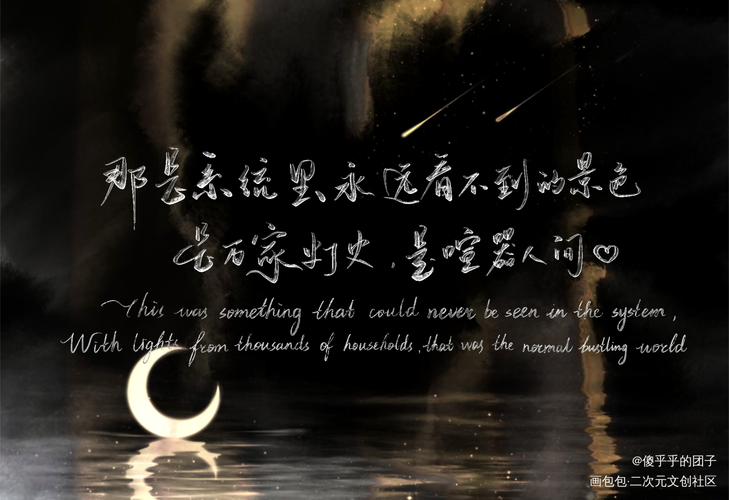 那是系统里永远看不到的景色
是万家灯火，是喧嚣人间♡
This was something that could never be seen in the system,
With lights from thousands of households, that was the normal bustling world
@傻乎乎的团子
画包包·二次元文创社区